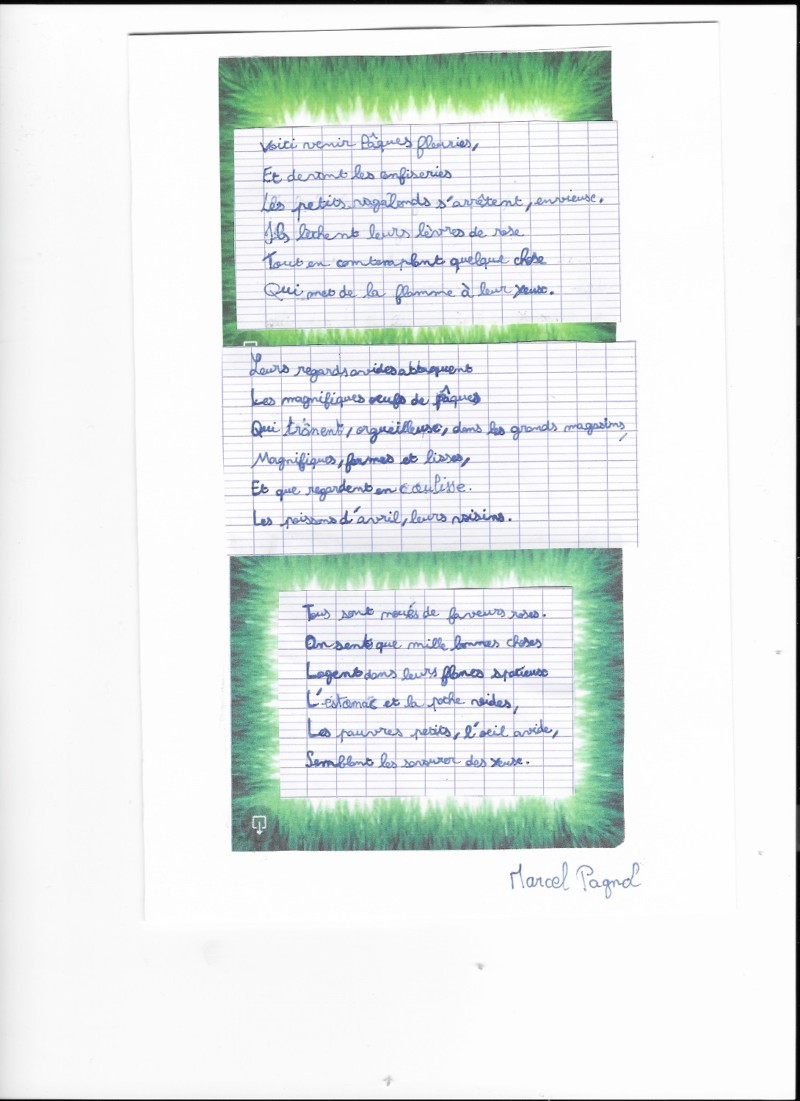 Voici venir Pâques fleuries,
Et devant les confiseries
Les petits vagabonds s'arrêtent, envieux.
Ils lèchent leurs lèvres de rose
Tout en contemplant quelque chose
Qui met de la flamme à leur yeux.
Leurs regards avides attaquent
Les magnifiques oeufs de Pâques
Qui trônent, orgueilleux, dans les grands magasins,
Magnifiques, fermes et lisses,
Et que regardent en coulisse.
Les poissons d'avril, leurs voisins.
Tous sont noués de faveurs roses.
On sent que mille bonnes choses
Logent dans leurs flancs spacieux
L'estomac et la poche vides,
Les pauvres petits, l'oeil avide,
Semblent les savourer des yeux.
Marcel Pagnol